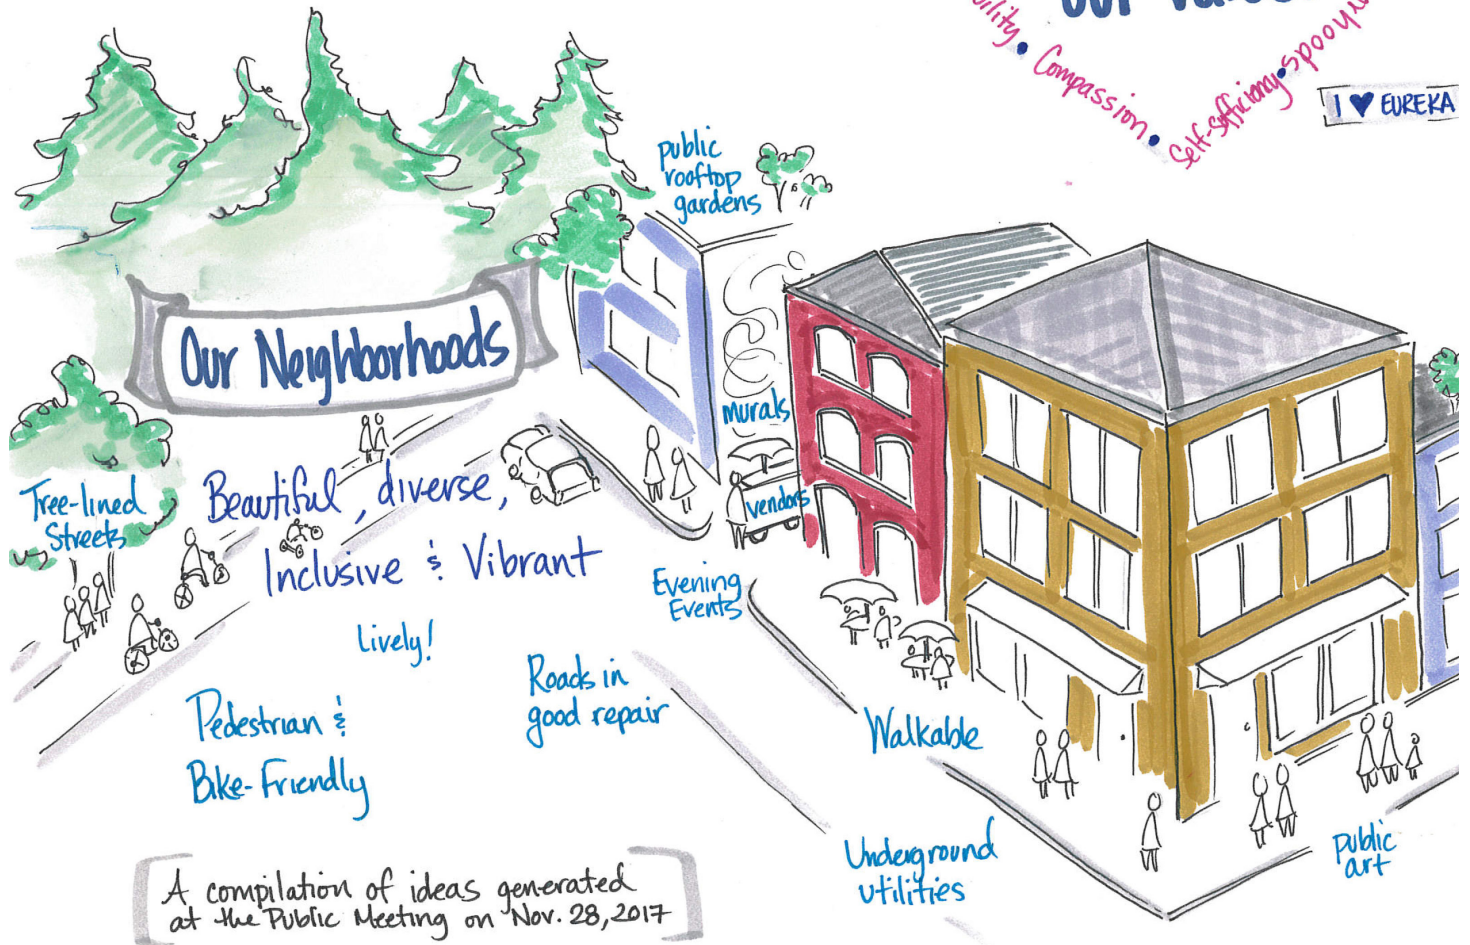 Compassion
Self-Sufficiency
I ♥ EUREKA
public
rooftop
gardens
Our Neighborhoods
murals
vendors
Tree-lined
Streets
Beautiful, diverse,
Inclusive & Vibrant
Lively!
Evening
Events
Roads in
good repair
Pedestrian &
Bike-Friendly
Walkable
Underground
utilities
public
art
A compilation of ideas generated
at the Public Meeting on Nov. 28, 2017